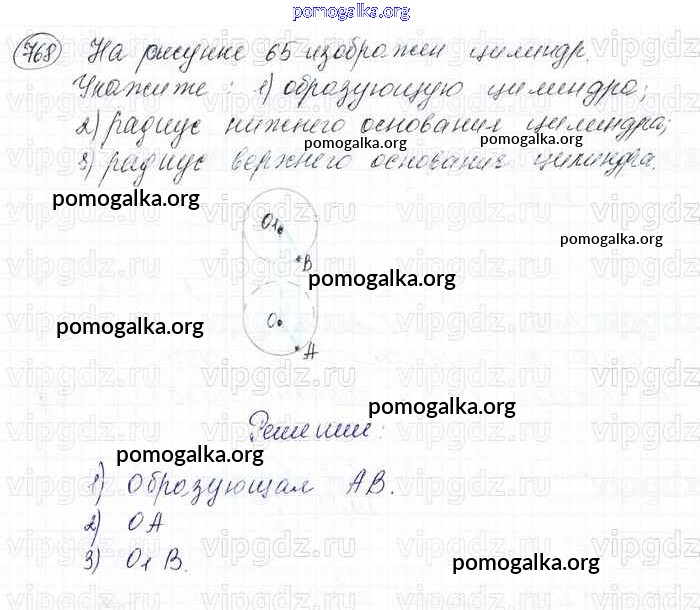 pomogalka.org
768 На рисунке 65 изображен цилиндр.
Укажите: 1) образующую цилиндра;
2) радиус нижнего основания цилиндра;
pomogalka.org pomogalka.org
3) радиус верхнего основания цилиндра.
pomogalka.org
O1
pomogalka.org
B
pomogalka.org
pomogalka.org
O
A
pomogalka.org
Решение:
pomogalka.org
1) Образующая AB.
2) OA
3) O1 B.
pomogalka.org